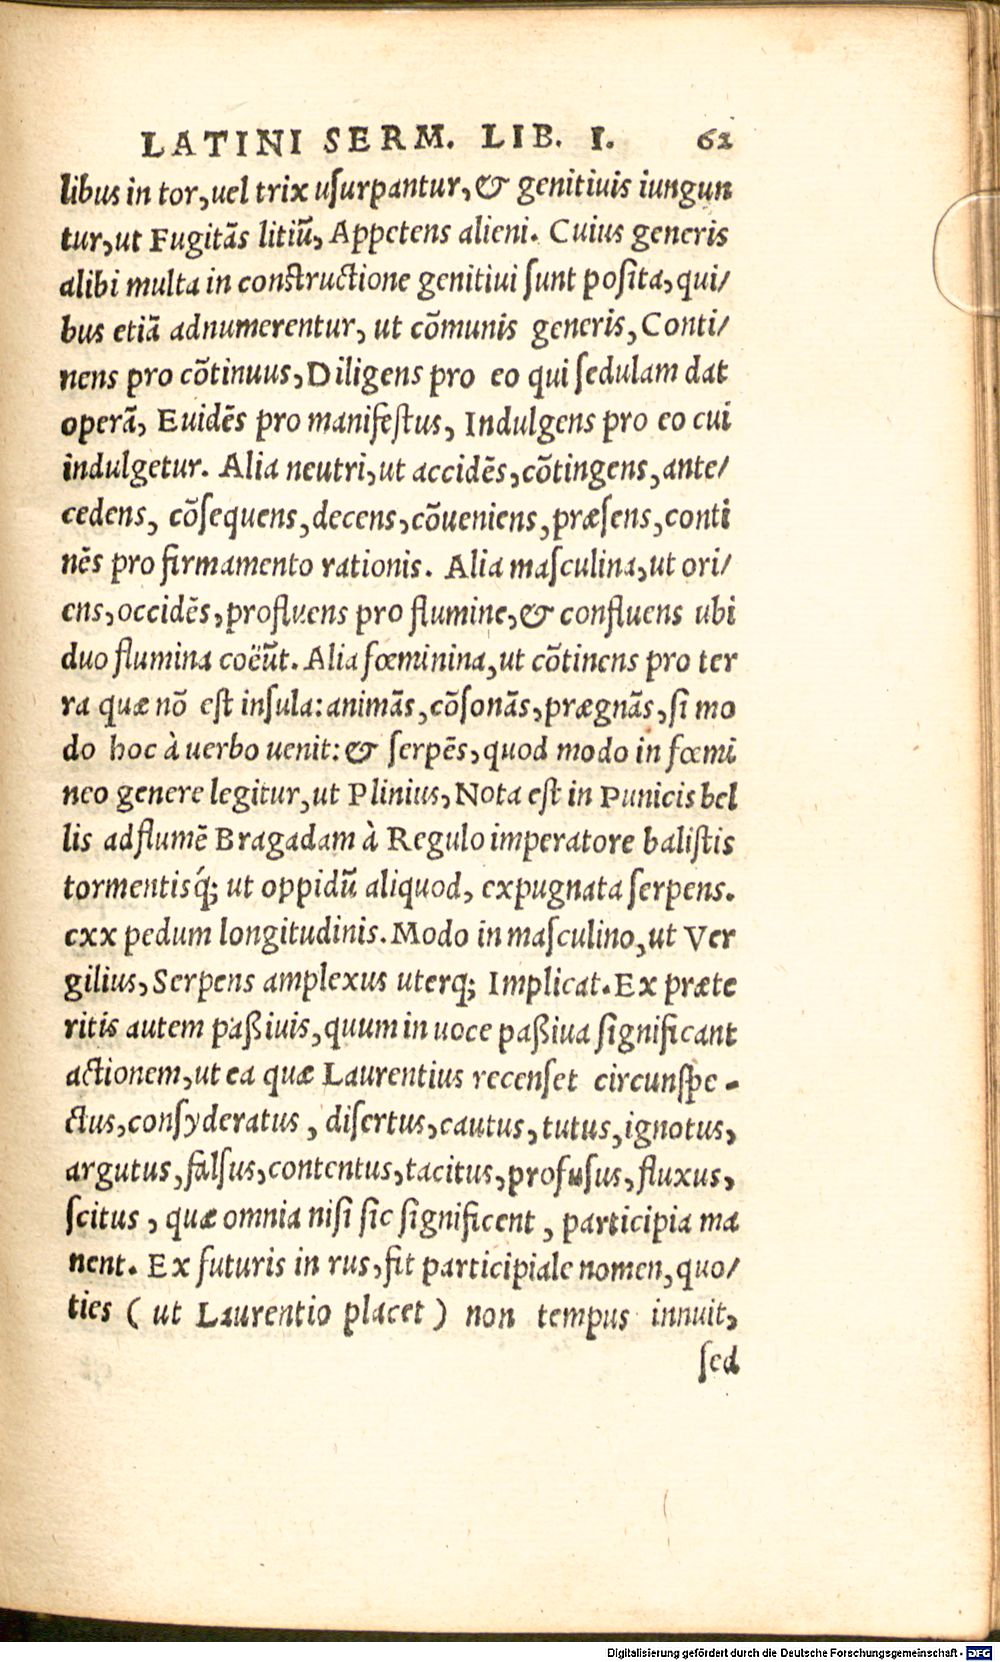 LATINI SERM. LIB. I. 62
libus in tor, uel trix usurpantur, & genitiuis iungun
tur, ut Fugitãs litiũ, Appetens alieni. Cuius generis
alibi multa in constructione genitiui sunt posita, qui/
bus etiã adnumerentur, ut cõmunis generis, Conti/
nens pro cõtinuus, Diligens pro eo qui sedulam dat
operã, Euidẽs pro manifestus, Indulgens pro eo cui
indulgetur. Alia neutri, ut accidẽs, cõtingens, ante/
cedens, cõsequens, decens, cõueniens, præsens, conti
nẽs pro firmamento rationis. Alia masculina, ut ori/
ens, occidẽs, profluens pro flumine, & confluens ubi
duo flumina coëũt. Alia fœminina, ut cõtinens pro ter
ra quæ nõ est insula: animãs, cõsonãs, prægnãs, si mo
do hoc à uerbo uenit: & serpẽs, quod modo in fœmi
neo genere legitur, ut Plinius, Nota est in Punicis bel
lis ad flumẽ Bragadam à Regulo imperatore balistis
tormentisq́; ut oppidũ aliquod, expugnata serpens.
cxx pedum longitudinis. Modo in masculino, ut Ver
gilius, Serpens amplexus uterq; Implicat. Ex præte
ritis autem paßiuis, quum in uoce paßiua significant
actionem, ut ea quæ Laurentius recenset circunspe-
ctus, consyderatus, disertus, cautus, tutus, ignotus,
argutus, falsus, contentus, tacitus, profusus, fluxus,
scitus, quæ omnia nisi sic significent, participia ma
nent. Ex futuris in rus, fit participiale nomen, quo/
ties (ut Laurentio placet) non tempus innuit,
sed
Digitalisierung gefördert durch die Deutsche Forschungsgemeinschaft - DFG